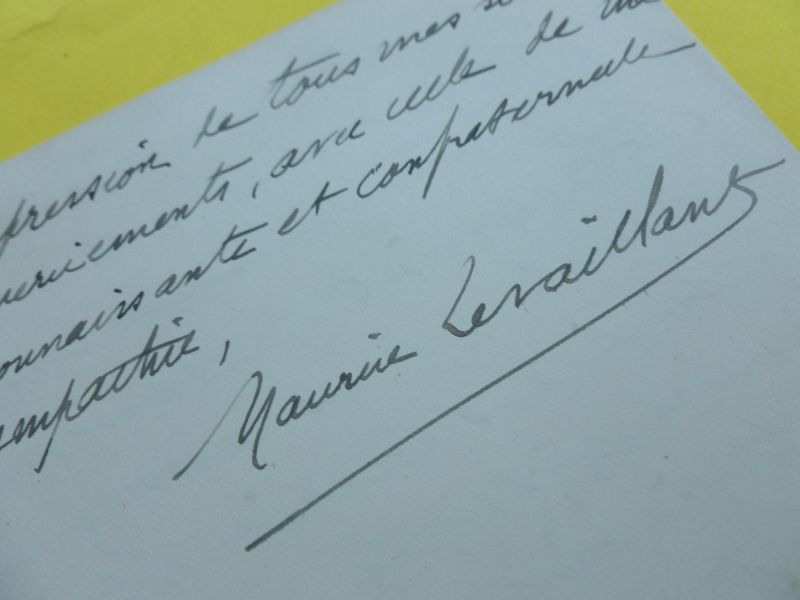 pression de tous mes se
merciements, avec celle de ma
connaissante et confraternelle
ympathie,
Maurice Levaillant